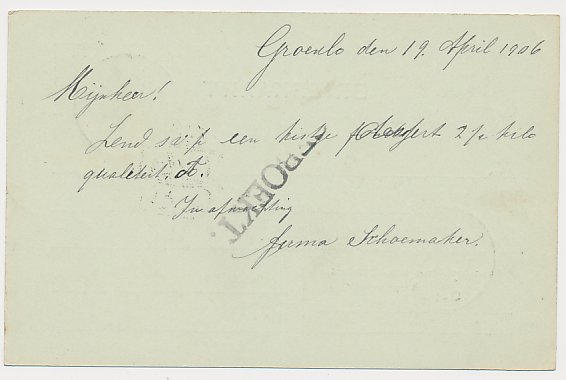 Groenlo den 19. April 1906
Mijnheer!
Zend s.v.p. een kistje 2½ kilo
qualiteit A.
In afwachting
firma Schoemaker.